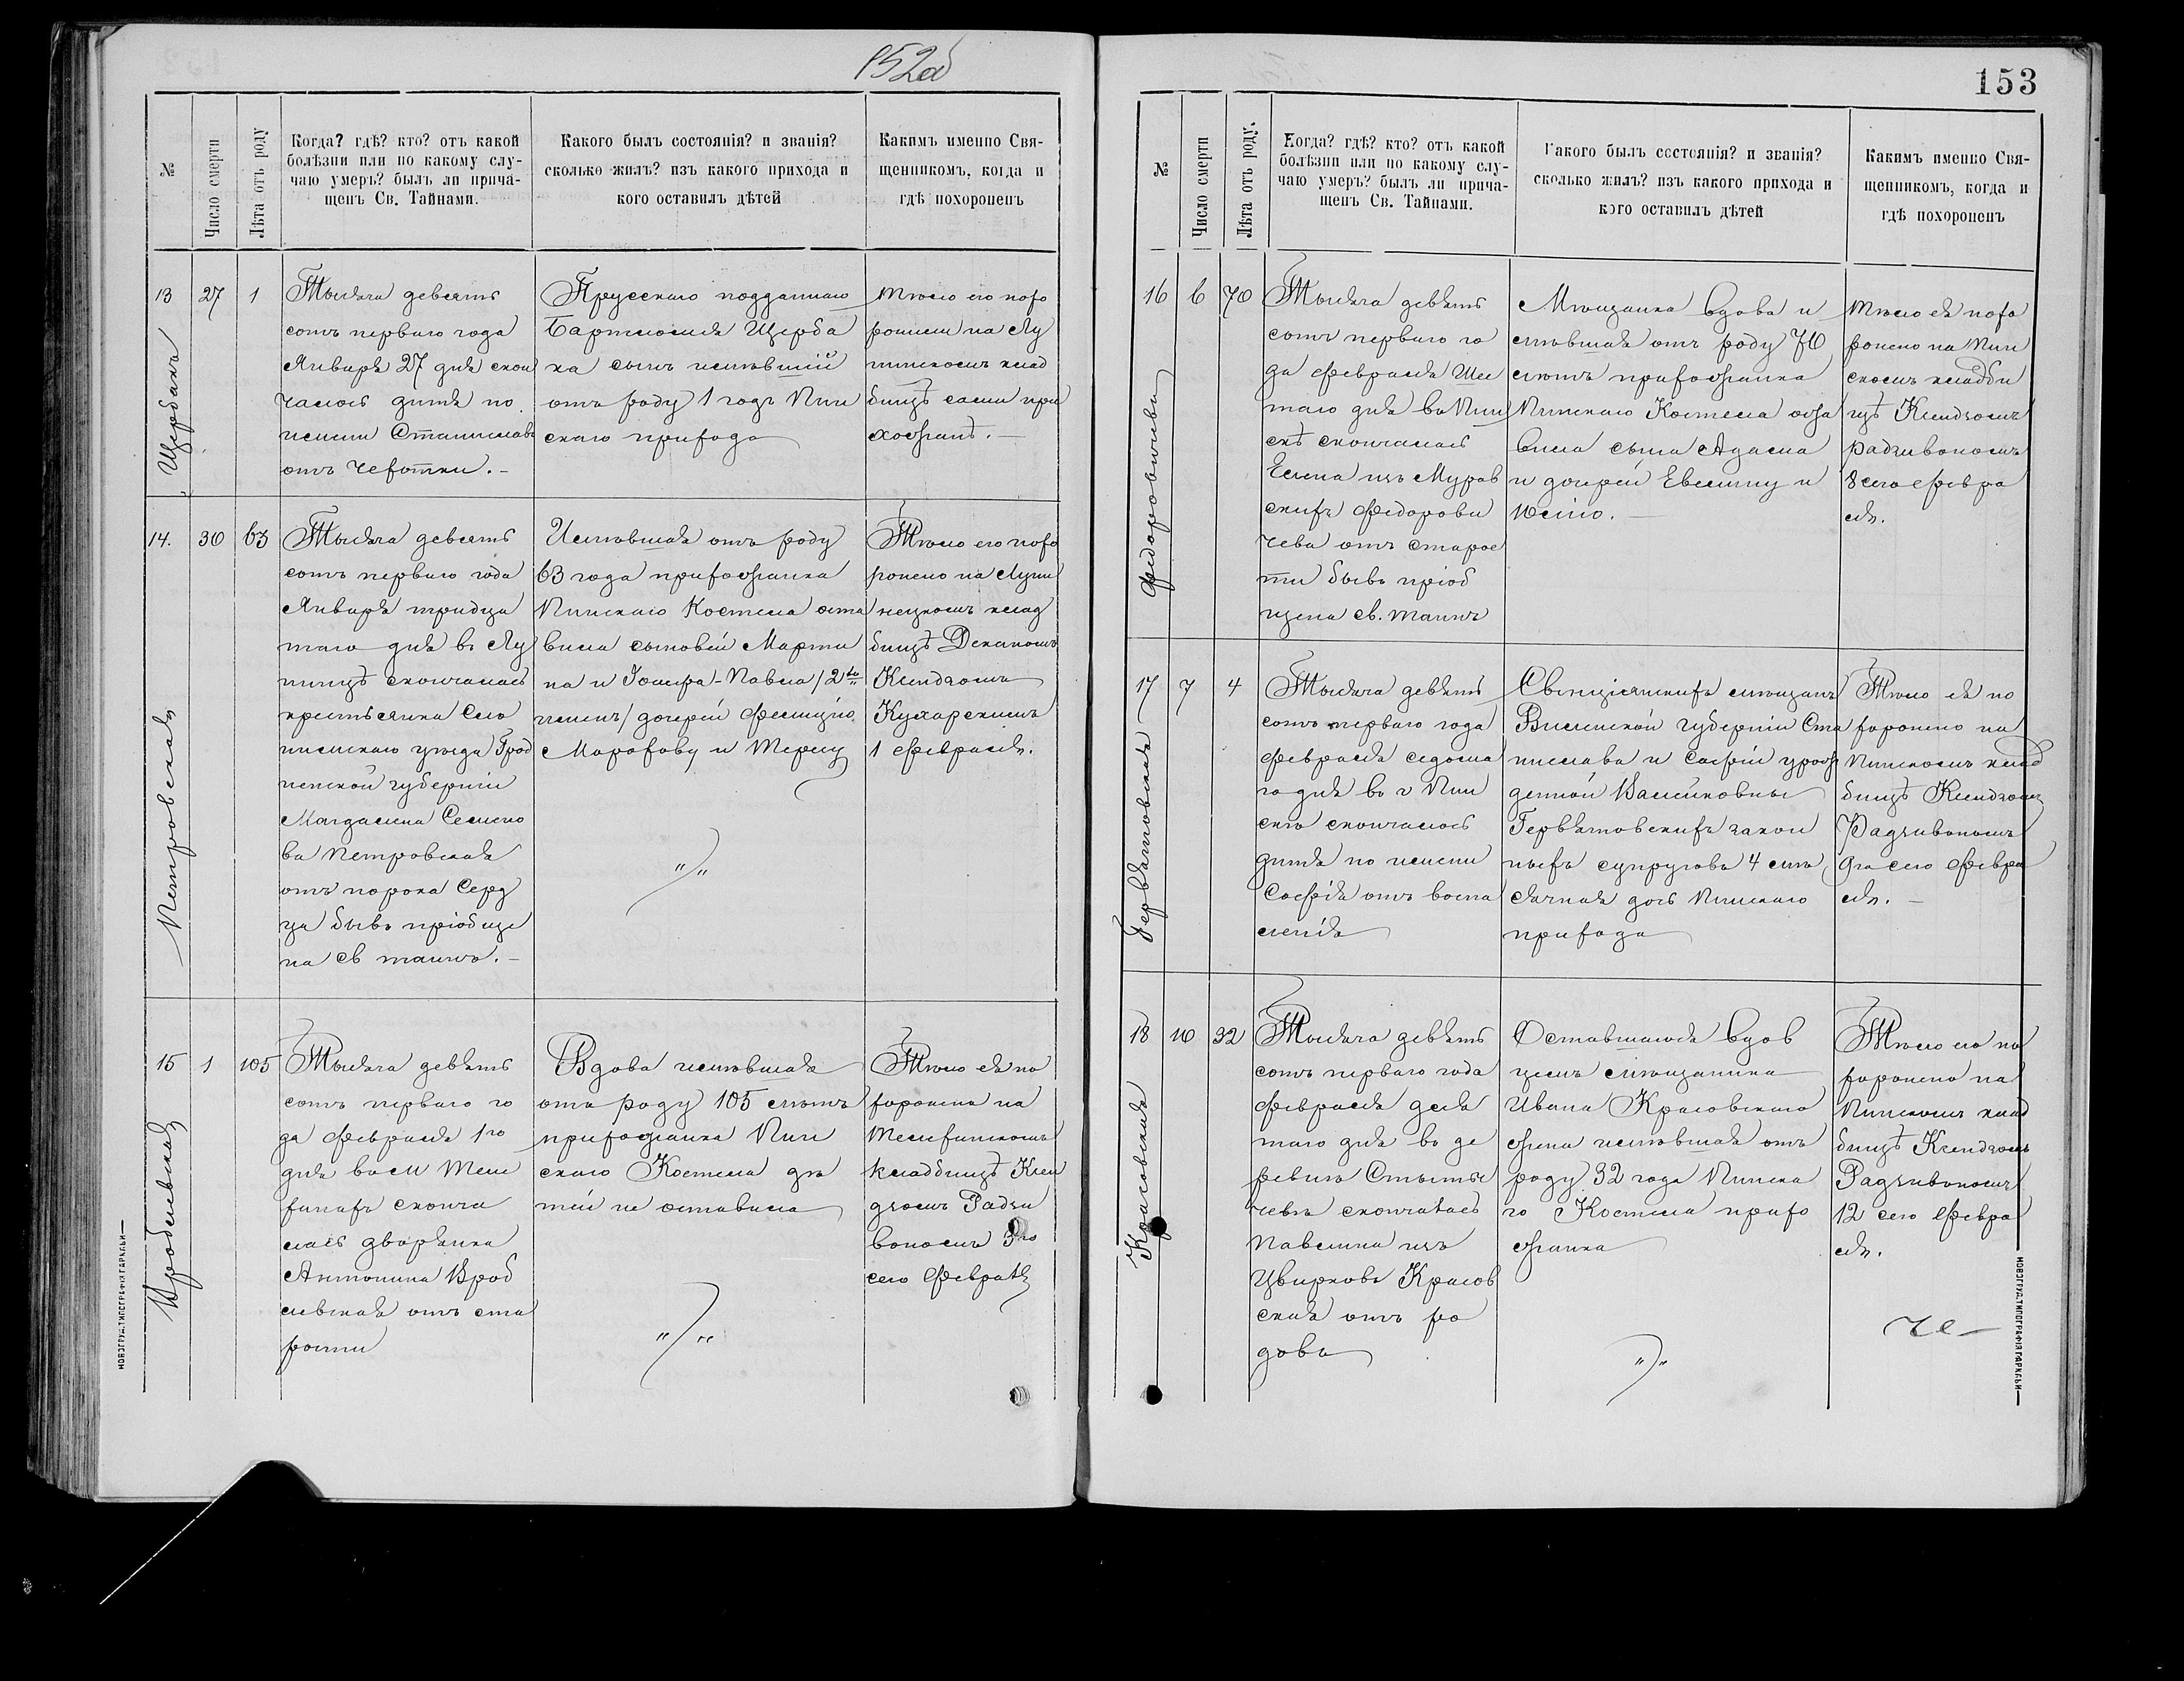 152об
№
Число смерти
Лѣта отъ роду
Когда? гдѣ? кто? отъ какой
болѣзни или по какому слу-
чаю умеръ? былъ ли прича-
щенъ Св. Тайнами.
Какого былъ состоянія? и званія?
сколько жилъ? изъ какого прихода и
кого оставилъ дѣтей
Какимъ именно Свя-
щенникомъ, когда и
гдѣ похороненъ
13
Щербака
27
1
Тысяча девять
сотъ перваго года
Января 27 дня скон
чалось дитя по
имени Станиславъ
отъ чехотки. –
Прусскаго подданнаго
Бартломея Щерба
ка сынъ имѣвшій
отъ роду 1 годъ Пин
скаго прихода
Тѣло его похо
ронили на Лу
нинскомъ клад
бищѣ сами при
хожане. –
14.
Петровская
30
63
Тысяча девять
сотъ перваго года
Января тридца
таго дня въ Лу
нинцѣ скончалась
крестьянка Сло
нимскаго уѣзда Грод
ненской губерніи
Магдалина Семено
ва Петровская
отъ порока Серд
ца бывъ пріобще
на Св таинъ. –
Имѣвшая отъ роду
63 года прихожанка
Пинскаго Костела оста
вила сыновей Марти
на и Іосифа-Павла /2хъ
именъ/ дочерей Фелицію
Марофову и Терезу
"/"
Тѣло его похо
ронено на Луни
нецкомъ клад
бищѣ Деканомъ
Ксендзомъ
Кухарскимъ
1 Февраля.
15
Вроблевская
1
105
Тысяча девять
сотъ перваго го
да Февраля 1го
дня въ М Теле
ханахъ сконча
лась дворянка
Антонина Вроб
левская отъ ста
рости
Вдова имѣвшая
отъ роду 105 лѣтъ
прихожанка Пин
скаго Костела дѣ
тей не оставила
"/"
Тѣло ея по
хоронена на
Телеханскомъ
кладбищѣ Ксен
дзомъ Радзи
вономъ 3го
сего Февраля
НОВОГРУД. ТИПОГРАФІЯ ГАРКАВИ
153
№
Число смерти
Лѣта отъ роду.
Когда? гдѣ? кто? отъ какой
болѣзни или по какому слу-
чаю умеръ? былъ ли прича-
щенъ Св. Тайнами.
Какого былъ состоянія? и званія?
сколько жилъ? изъ какого прихода и
кого оставилъ дѣтей
Какимъ именно Свя-
щенникомъ, когда и
гдѣ похороненъ
16
Федоровичева
6
70
Тысяча девять
сотъ перваго го
да Февраля Шес
таго дня въ Пин
скѣ скончалась
Елена изъ Мурав
скихъ Федорови
чева отъ старос
ти бывъ пріоб
щена Св. таинъ
Мѣщанка вдова и
мѣвшая отъ роду 70
лѣтъ прихожанка
Пинскаго Костела оста
вила сына Адама
и дочерей Евелину и
Юлію. –
Тѣло ея похо
ронено на Пин
скомъ кладби
щѣ Ксендзомъ
Радзивономъ
8 сего Февра
ля.
17
Гервятовская
7
4
Тысяча девять
сотъ перваго года
Февраля седьма
го дня въ г Пин
скѣ скончалось
дитя по имени
Софія отъ воспа
ленія
Свенцянскихъ мѣщанъ
Виленской губерніи Ста
нислава и Софіи урож
денной Валейковны
Гервятовскихъ закон
ныхъ супруговъ 4 мѣ
сячная дочь Пинскаго
прихода
Тѣло ея по
хоронено на
Пинскомъ клад
бищѣ Ксендзомъ
Радзивономъ
9го сего Февра
ля. –
18
Красовская
10
32
Тысяча девять
сотъ перваго года
Февраля деся
таго дня въ де
ревнѣ Стыты
чевѣ скончалась
Павлина изъ
Цвирковъ Красов
ская отъ ро
довъ
Оставшагося вдов
цемъ мѣщанина
Ивана Красовскаго
жена имѣвшая отъ
роду 32 года Пинска
го Костела прихо
жанка
"/"
Тѣло его по
хоронено на
Пинскомъ клад
бищѣ Ксендзомъ
Радзивономъ
12 сего Февра
ля.
НОВОГРУД. ТИПОГРАФІЯ ГАРКАВИ